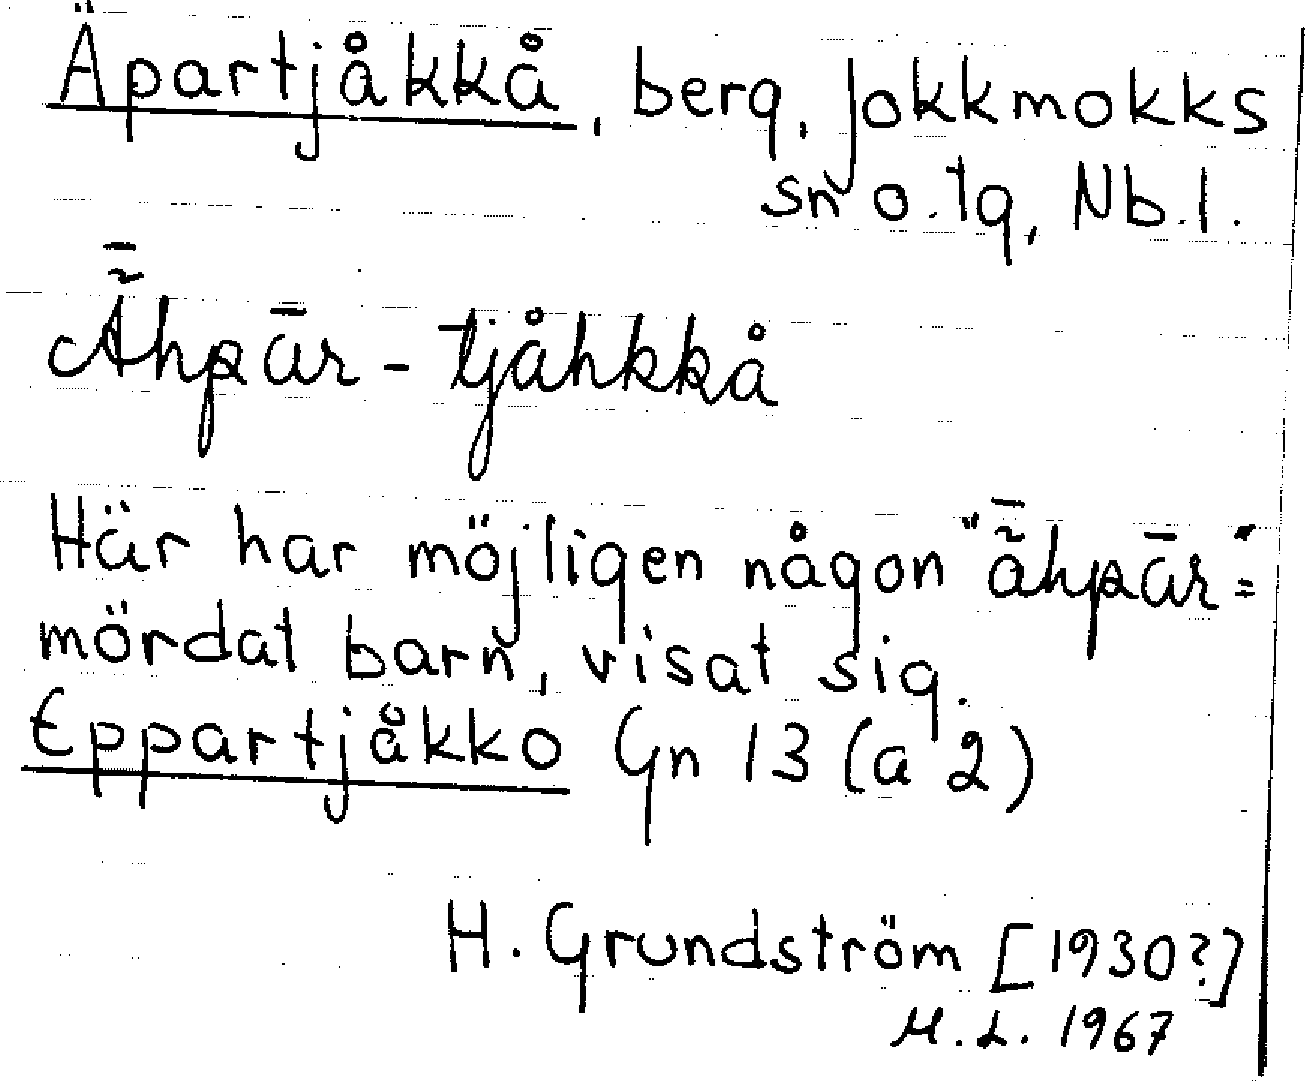 Äpartjåkkå, berg, Jokkmokks
sn o. tg, Nb. l.
Ā̃hpār-tjåhkkå
Här har möjligen någon "ā̃hpār"=
mördat barn, visat sig.
Eppartjåkko Gn 13 (a 2)
H. Grundström [1930?]
M. L. 1967